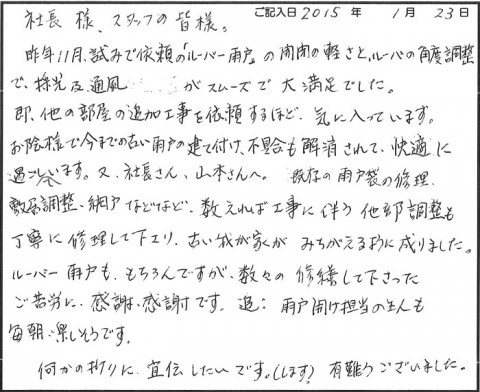 ご記入日 2015 年 1 月 23 日
社長様、スタッフの皆様。
昨年11月、試みで依頼の「ルーバー雨戸」の開閉の軽さと、ルーバーの角度調整
で、採光及通風 がスムーズで大満足でした。
即、他の部屋の追加工事を依頼するほど、気に入っています。
お陰様で今までの古い雨戸の建て付け、不具合も解消されて、快適に
過ごしています。又、社長さん、山本さんへ。既存の雨戸袋の修理、
調整、網戸などなど、数えれば工事に伴う他部調整も
丁寧に修理して下さり、古い我が家がみちがえるように成りました。
ルーバー雨戸も、もちろんですが、数々の修繕して下さった
ご苦労に、感謝、感謝です。追: 雨戸開け担当の主人も
毎朝、楽しそうです。
何かの折りに、宣伝したいです。(します) 有難うございました。